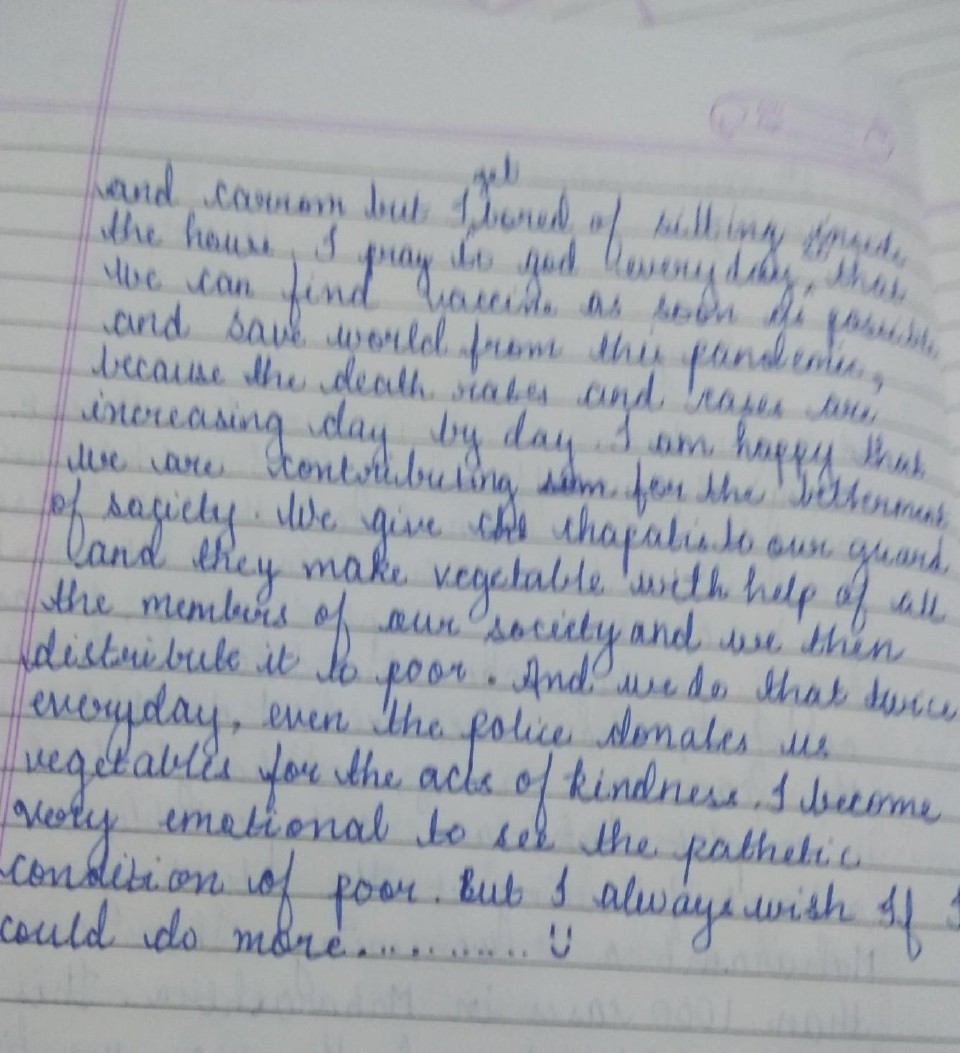 and carrom but I get bored of sitting inside
the house. I pray to god everyday, that
we can find vaccine as soon as possible
and save world from this pandemic,
because the death rates and cases are
increasing day by day. I am happy that
we are contributing for the betterment
of society. We give chapatis to our guard
and they make vegetable with help of all
the members of our society and we then
distribute it to poor. And we do that twice
everyday, even the police donates us
vegetables for the acts of kindness. I become
very emotional to see the pathetic
condition of poor. But I always wish If I
could do more............